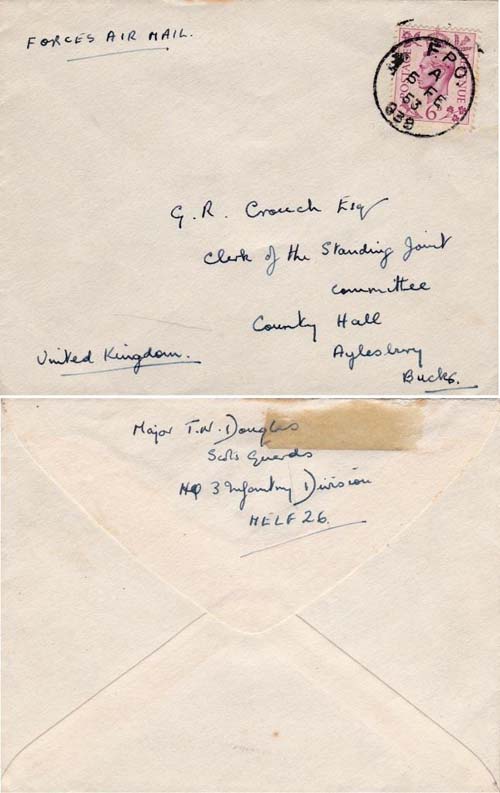 FORCES AIR MAIL.
F.P.O.
A
5 FE
53
939
POSTAGE REVENUE
6D
G. R. Crouch Esq
Clerk of the Standing Joint
Committee
County Hall
Aylesbury
Bucks.
United Kingdom.
Major T.N. Douglas
Scots Guards
HQ 3 Infantry Division
MELF 26.